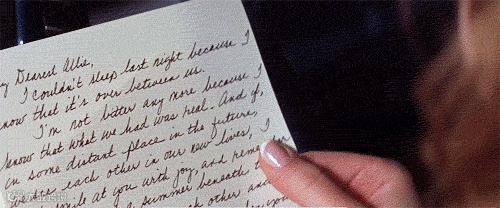 y Dearest Allie,
I couldn't sleep last night because I
know that it's over between us.
I'm not bitter any more because I
know that what we had was real. And if,
in some distant place in the future,
each other in our new lives, I
smile at you with joy, and remem
a summer beneath
each other and